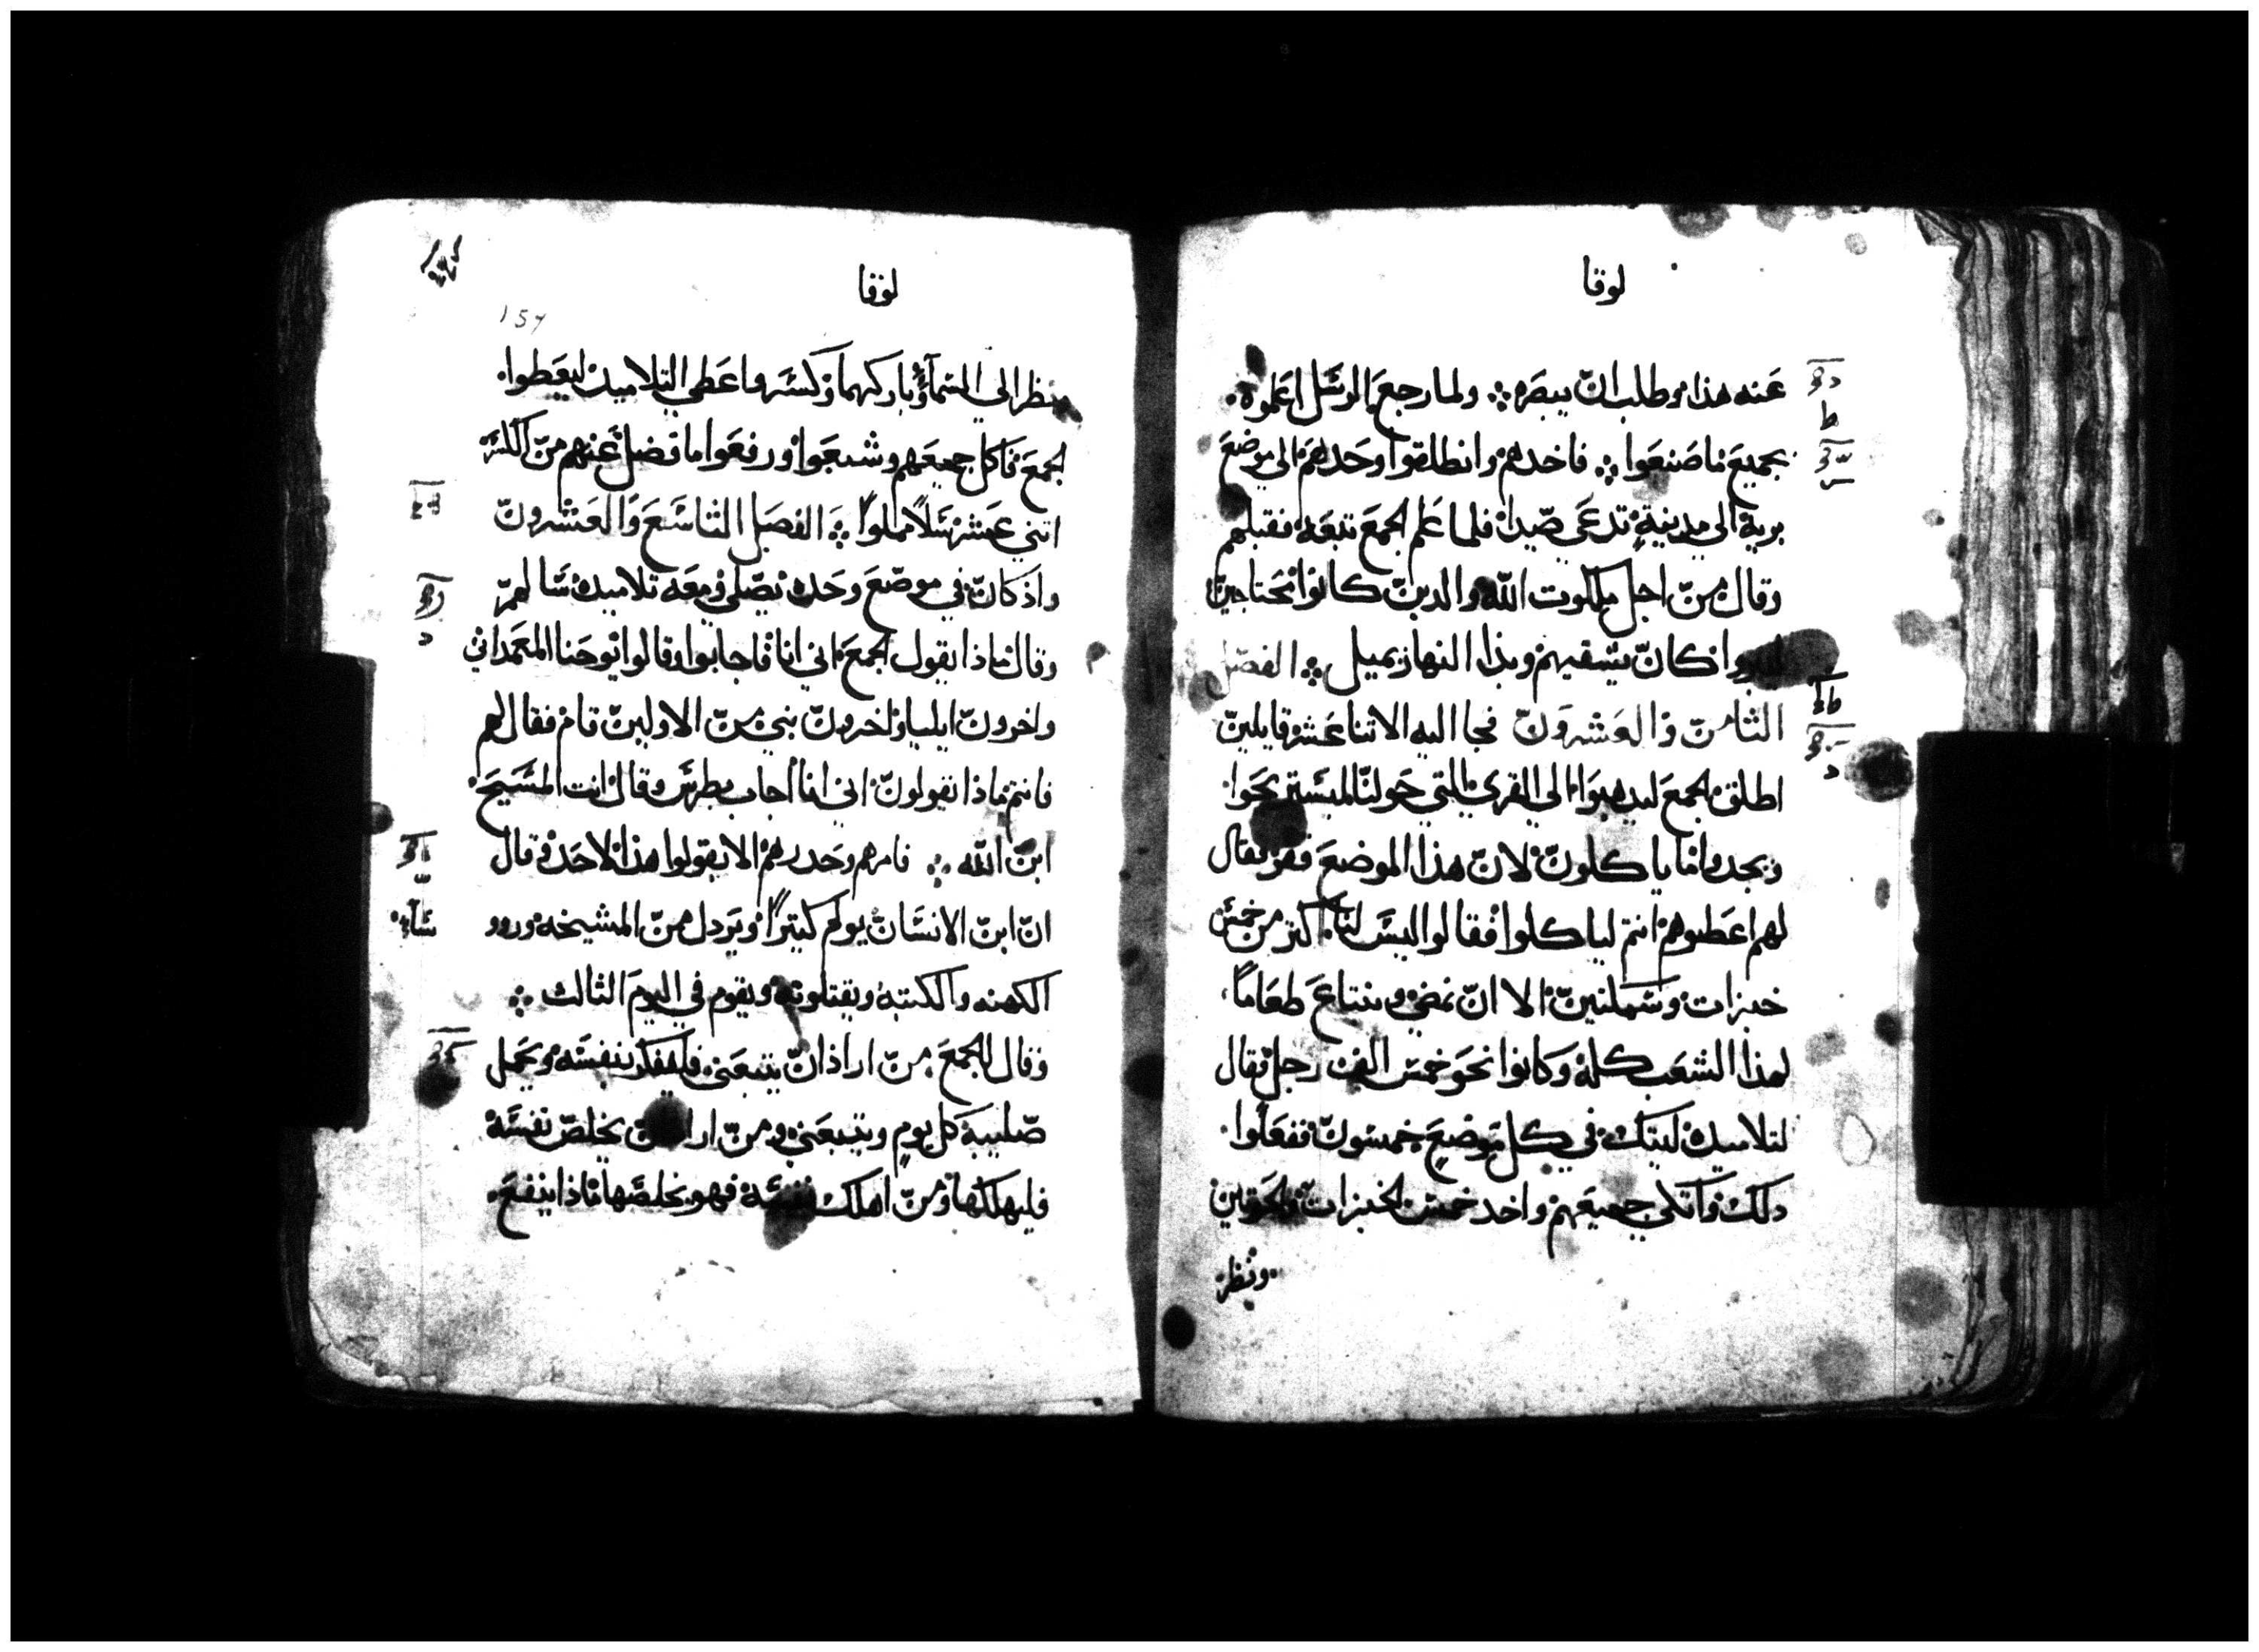 لوقا
عنه هذا وطلب ان يبصره ولما رجع الرسل اعلموه
بجميع ما صنعوا فاخدهم وانطلقوا وحدهم الى موضع
برية الي مدينة تدعى صيدا فلما علم الجمع تبعه فقبلهم
وقال من اجل ملكوت الله والدين كانوا محتاجين
وا كان يشفيهم وبدا النهار يميل الفصل
الثامن والعشرون فجا اليه الاتنا عشر قايلين
اطلق الجمع ليدهبوا الي القري التي حولنا ليستريحوا
ويجدوا ما ياكلون لان هذا الموضع قفر فقال
لهم اعطوهم انتم لياكلوا فقالوا ليس لنا اكتر من خمس
خبزات وسمكتين الا ان نمضي ونبتاع طعاما
لهذا الشعب كله وكانوا نحو خمس الف رجل فقال
لتلاميده ليتك في كل موضع خمسون ففعلوا
دلك واتكى جميعهم واخد خمس الخبزات والحوتين
ونظر
لوقا
157
ونظر الي السما وباركهما وكسر واعطي التلاميد ليعطوا
الجمع فاكل جميعهم وشبعوا ورفعوا ما فضل عنهم من الكسر
اتني عشر سلا مملوا الفصل التاسع والعشرون
واذ كان في موضع وحده يصلي ومعه تلاميده سالهم
وقال ماذا يقول الجمع اني انا فاجابوا وقالوا يوحنا المعمداني
واخرون ايليا واخرون نبي من الاولين قام فقال لهم
فانتم ماذا تقولون اني انا اجاب بطرس وقال انت المسيح
ابن الله فامرهم وحدرهم الا يقولوا هذا لاحد وقال
ان ابن الانسان يولم كتيرا ويردل من المشيخه وروو
الكهنه والكتبة ويقتلونه ويقوم في اليوم الثالث
وقال للجمع من اراد ان يتبعني فليكفر بنفسه ويحمل
صليبه كل يوم ويتبعني ومن ارا ن يخلص نفسه
فليهلكها ومن اهلك نفسه فهو يخلصها ماذا ينفع